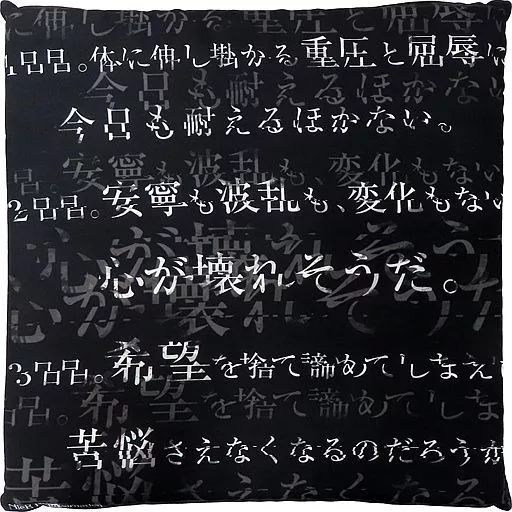 1日目。体に伸し掛かる重圧と屈辱に
今日も耐えるほかない。
2日目。安寧も波乱も、変化もない
心が壊れそうだ。
3日目。希望を捨て諦めてしまえ
苦悩さえなくなるのだろうか